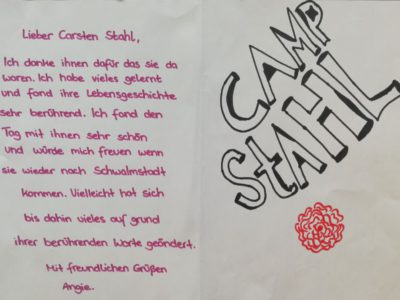 Lieber Carsten Stahl,
Ich danke ihnen dafür das sie da
waren. Ich habe vieles gelernt
und fand ihre Lebensgeschichte
sehr berührend. Ich fand den
Tag mit ihnen sehr schön
und würde mich freuen wenn
sie wieder nach Schwalmstadt
kommen. Vielleicht hat sich
bis dahin vieles auf grund
ihrer berührenden Worte geändert.
Mit freundlichen Grüßen
Angie..
CAMP
StAHL